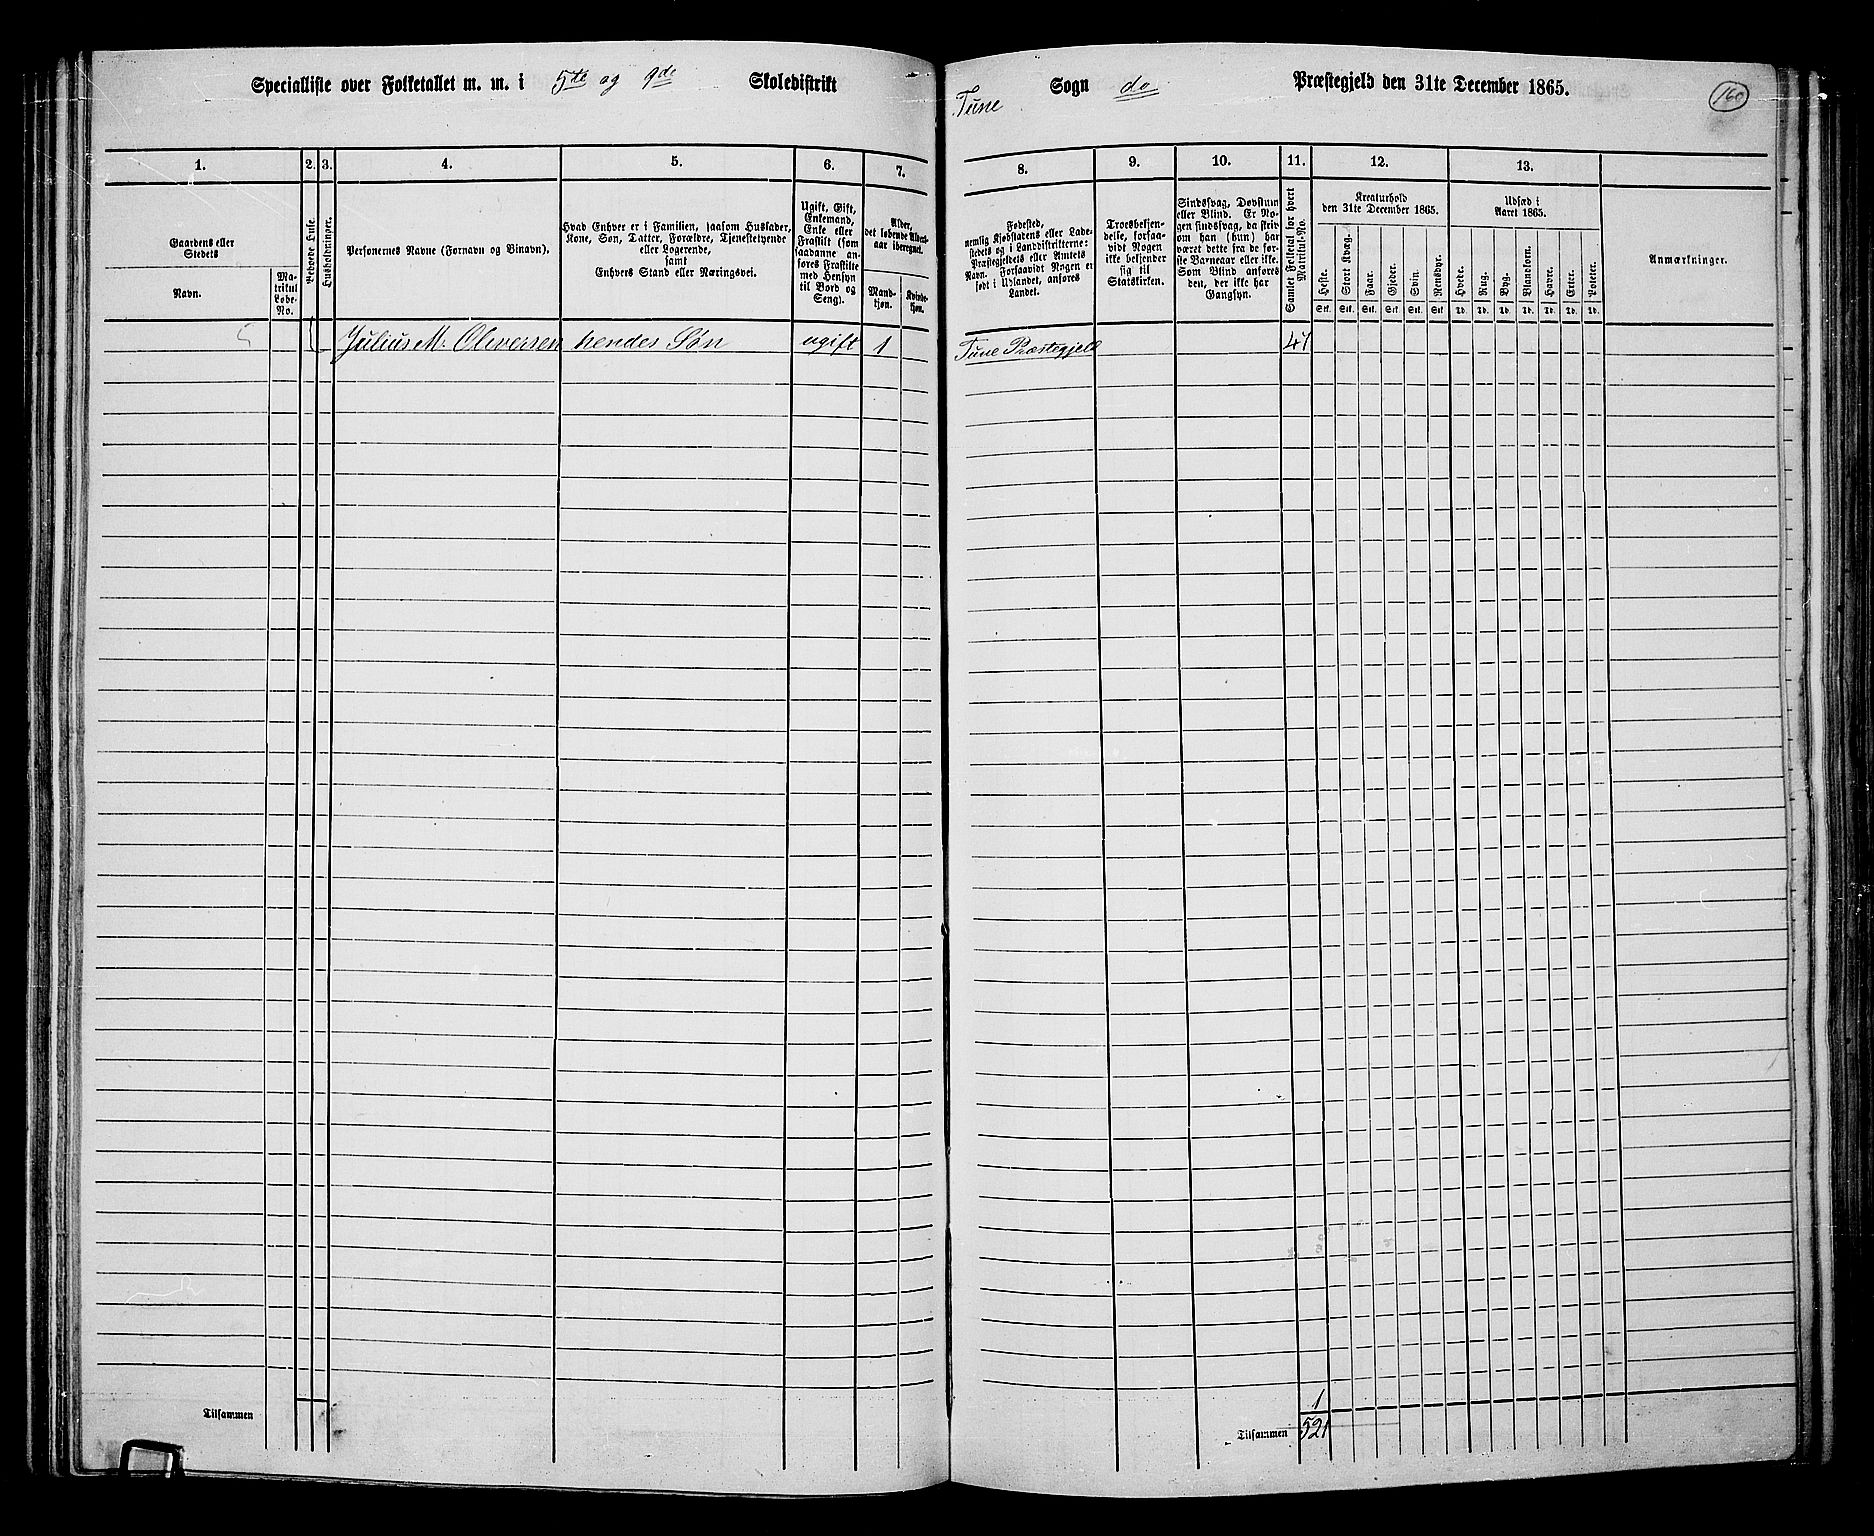 Specialliste over Folketallet m. m. i 5te og 9de Skoledistrikt
Tune Sogn do Præstegjeld den 31te December 1865.
160
1.
2.
3.
4.
5.
6.
7.
8.
9.
10.
11.
12.
13.
Gaardens eller
Stedets
Navn.
Ma-
trikul
Løbe-
No.
Beboede Huse.
Husholdninger.
Personernes Navne (Fornavn og Tilnavn).
Hvad Enhver er i Familien, saasom Husfader,
Kone, Søn, Datter, Forældre, Tjenestetyende
eller Logerende,
samt
Enhvers Stand eller Næringsvei.
Ugift, Gift,
Enkemand,
Enke eller
Fraskilt (som
saadanne an-
føres Fraskilte
med Hensyn
til Bord og
Seng).
Alder,
det løbende Alders-
aar iberegnet.
Mand-
kjøn.
Kvinde-
kjøn.
Fødested,
nemlig Kjøbstadens eller Lade-
stedets og i Landdistrikterne:
Præstegjeldets eller Amtets
Navn. Forsaavidt Nogen er
født i Udlandet, anføres
Landet.
Troesbekjen-
delse, forsaa-
vidt Nogen
ikke bekjender
sig til
Statskirken.
Sindssvag, Døvstum
eller Blind. Er No-
gen sindssvag, da skriv
om han (hun) har
været dette fra de før-
ste Barneaar eller ikke.
Som Blind anføres
den, der ikke har
Gangsyn.
Samlet Folketal for hvert
Matrikul-No.
Kreaturhold
den 31te December 1865.
Heste.
Stort Kvæg.
Faar.
Gjeder.
Svin.
Rensdyr.
Stk. Stk. Stk. Stk. Stk. Stk.
Udsæd i
Aaret 1865.
Hvede.
Rug.
Byg.
Blandkorn.
Havre.
Erter.
Poteter.
Td. Td. Td. Td. Td. Td. Td.
Anmærkninger.
Julius M. Oliversen hendes Søn ugift 1 Tune Præstegjeld 41
1
Tilsammen
Tilsammen 521